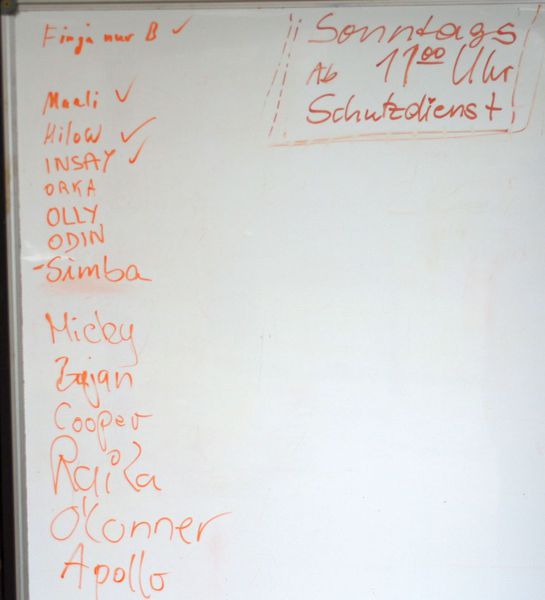 Finja nur B ✓
Maeli ✓
Hilow ✓
INSAY ✓
ORKA
OLLY
ODIN
-Simba
Micky
Bajan
Cooper
Raika
O'Conner
Apollo
Sonntags
Ab 11 00 Uhr
Schutzdienst